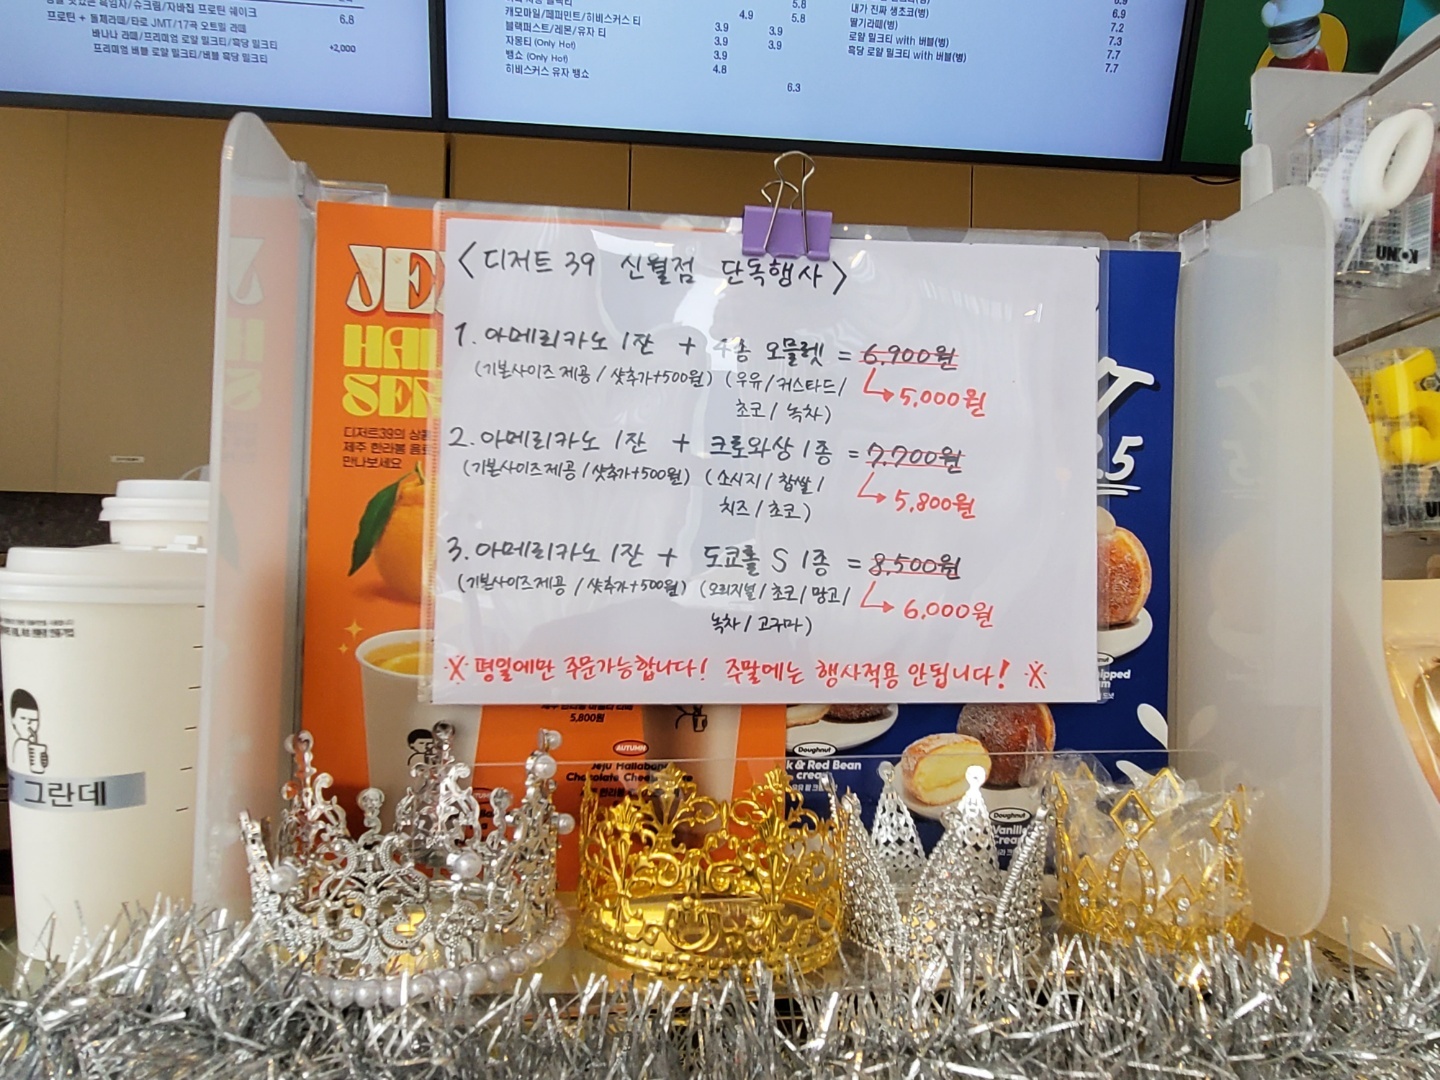 프로틴 + 돌체라떼/타로 JMT/17곡 오트밀 라떼
바나나 라떼/프리미엄 로얄 밀크티/흑당 밀크티
프리미엄 버블 로얄 밀크티/버블 흑당 밀크티
6.8
+2,000
캐모마일/페퍼민트/히비스커스 티
블랙퍼스트/레몬/유자 티
자몽티 (Only Hot)
뱅쇼 (Only Hot)
히비스커스 유자 뱅쇼
4.9
5.8
5.8
3.9
3.9
3.9
3.9
3.9
4.8
6.3
내가 진짜 생초코(병)
딸기라떼(병)
로얄 밀크티 with 버블(병)
흑당 로얄 밀크티 with 버블(병)
6.9
6.9
7.2
7.3
7.7
7.7
<디저트 39 신월점 단독행사>
1. 아메리카노 1잔 + 4종 오믈렛 = 6,900원
(기본사이즈 제공 / 샷추가+500원) (우유/커스타드/
초코/녹차)
5,000원
2. 아메리카노 1잔 + 크로와상 1종 = 7,700원
(기본사이즈 제공 / 샷추가+500원) (소시지/찹쌀/
치즈/초코)
5,800원
3. 아메리카노 1잔 + 도쿄롤 S 1종 = 8,500원
(기본사이즈 제공 / 샷추가+500원) (오리지널/초코/망고/
녹차/고구마)
6,000원
※ 평일에만 주문가능합니다! 주말에는 행사적용 안됩니다! ※
디저트39의 상
제주 한라봉 음료
만나보세요
5,800원
AUTUMN
Jeju Hallabong
Doughnut
k & Red Bean
cream
Doughnut
Vanilla
Cream
그란데